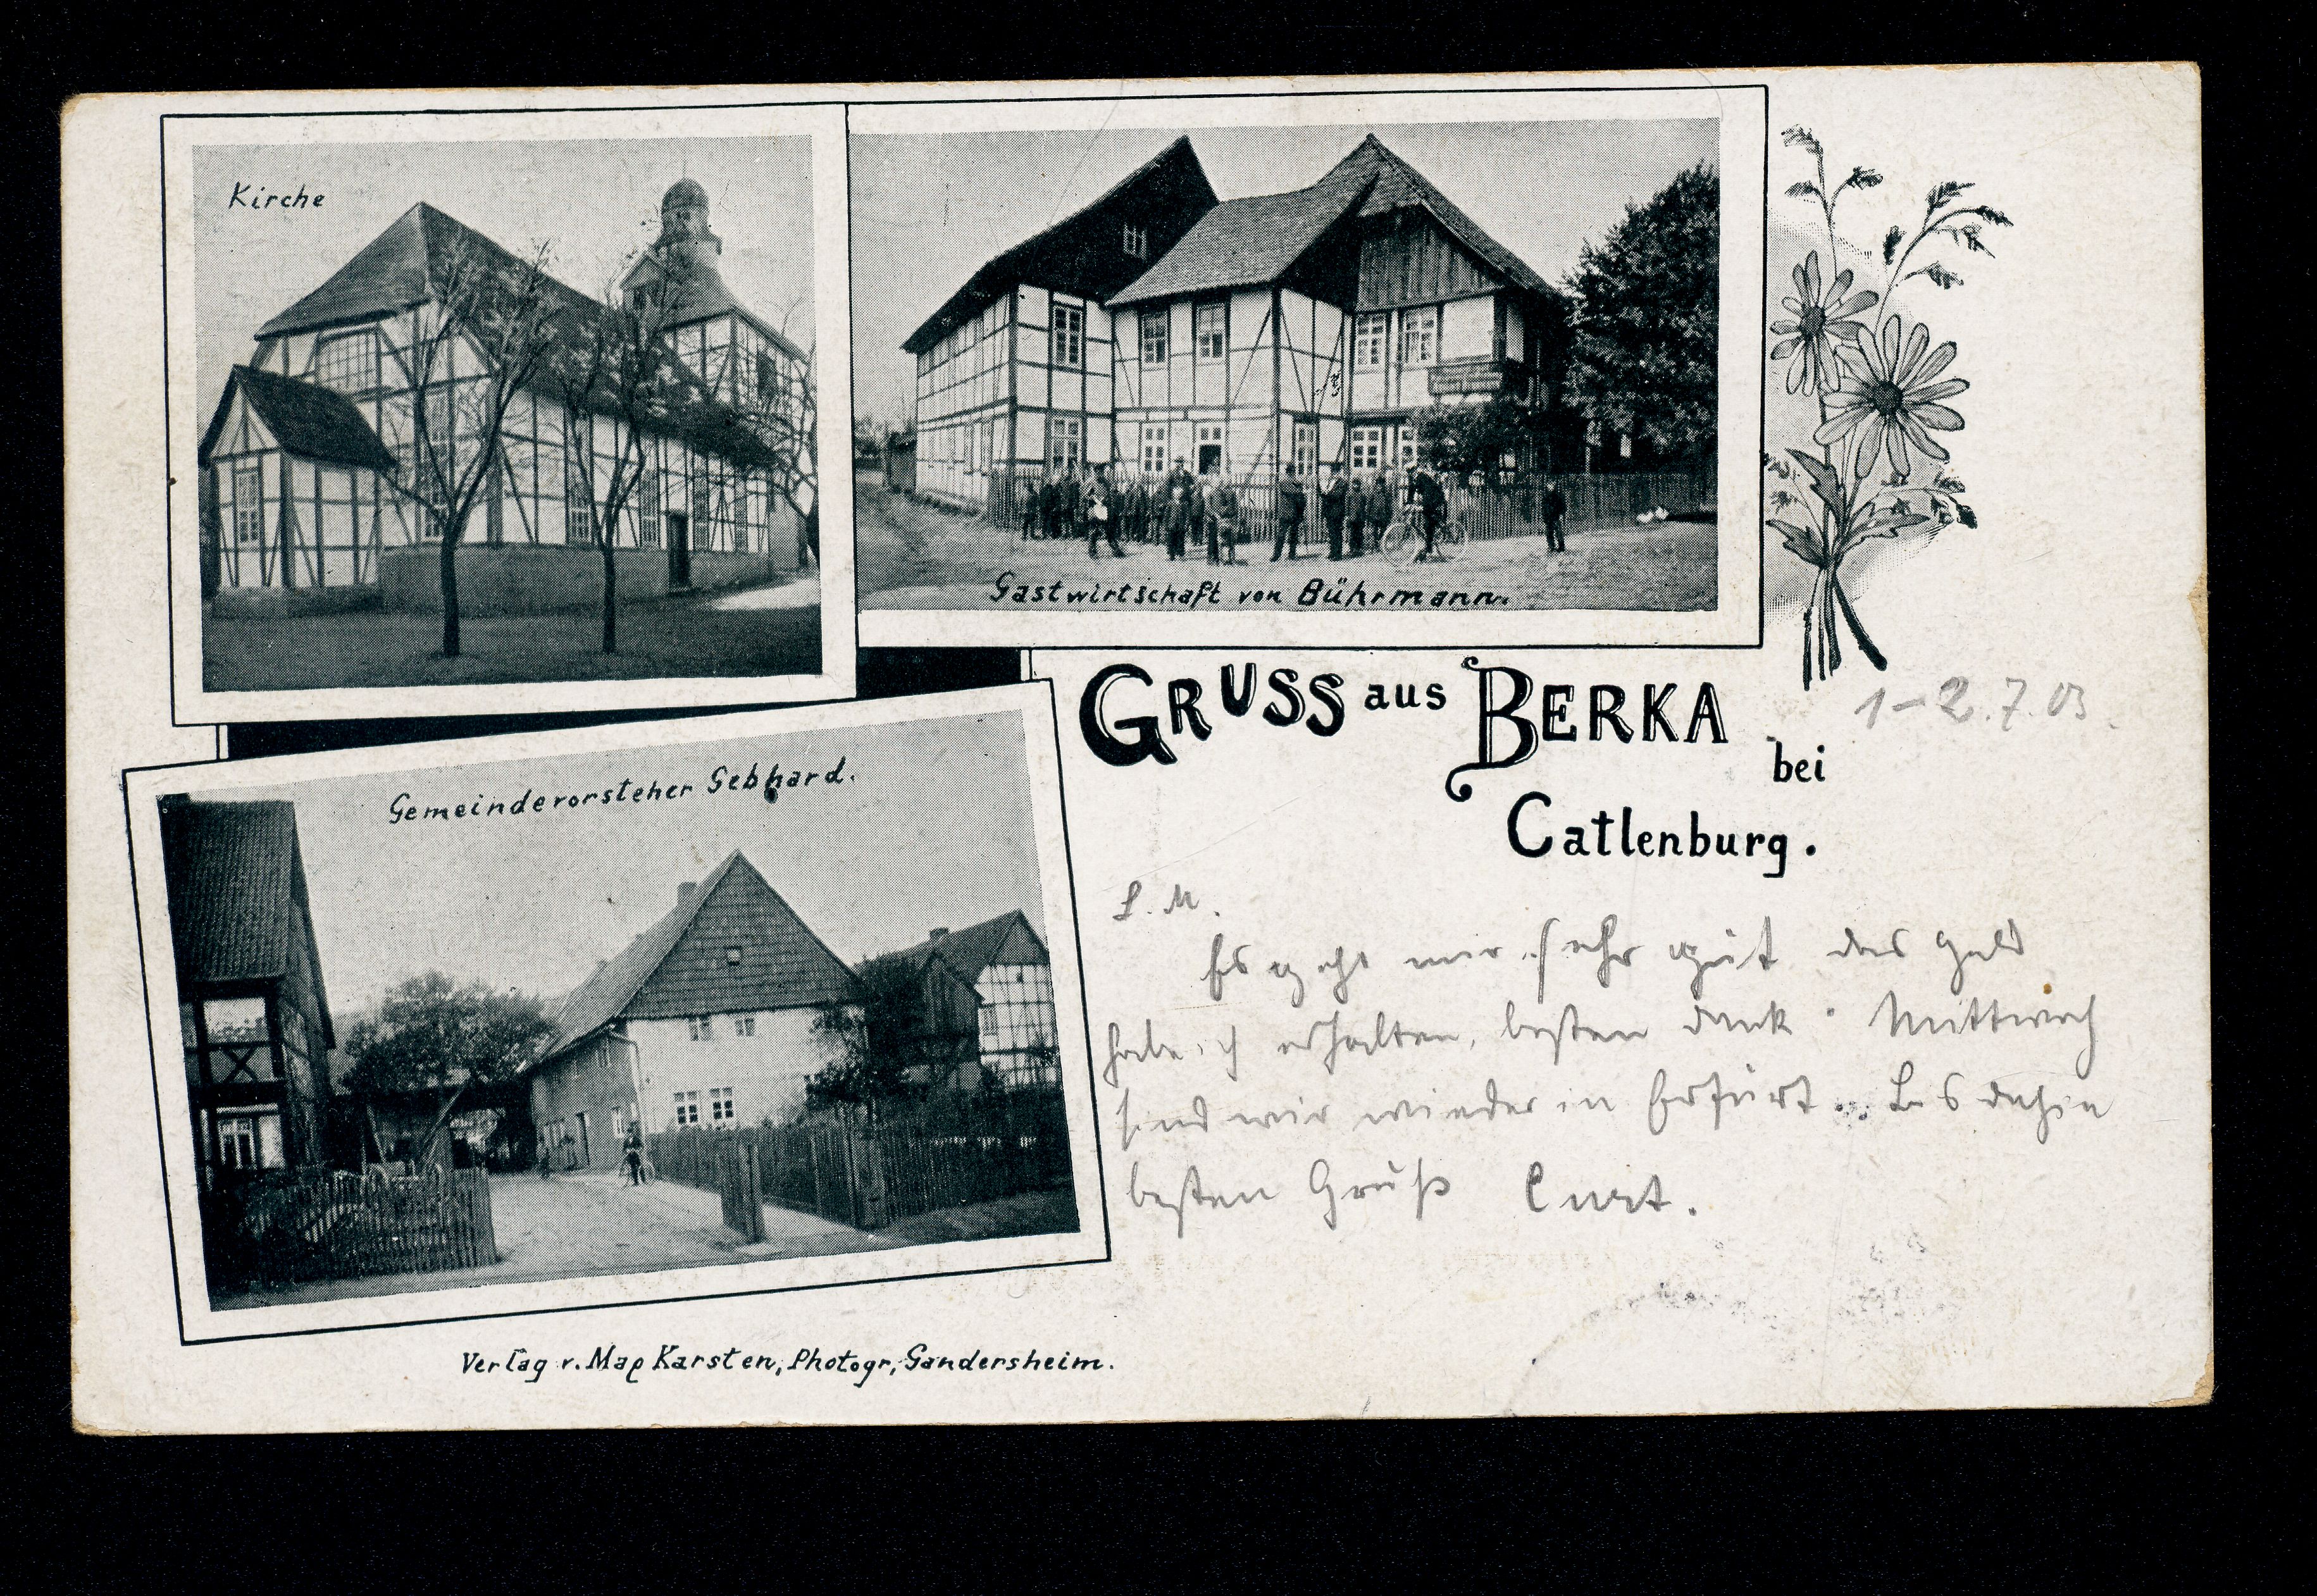 Kirche
Gastwirtschaft von Bührmann.
GRUSS aus BERKA
bei
Catlenburg.
1-2.7.03.
Gemeindevorsteher Gebhard.
L. M.
Es geht mir sehr gut das Geld
habe ich erhalten, besten Dank. Mittwoch
sind wir wieder in Erfurt. Bis dahin
besten Gruß Curt.
Verlag v. Max Karsten, Photogr, Gandersheim.